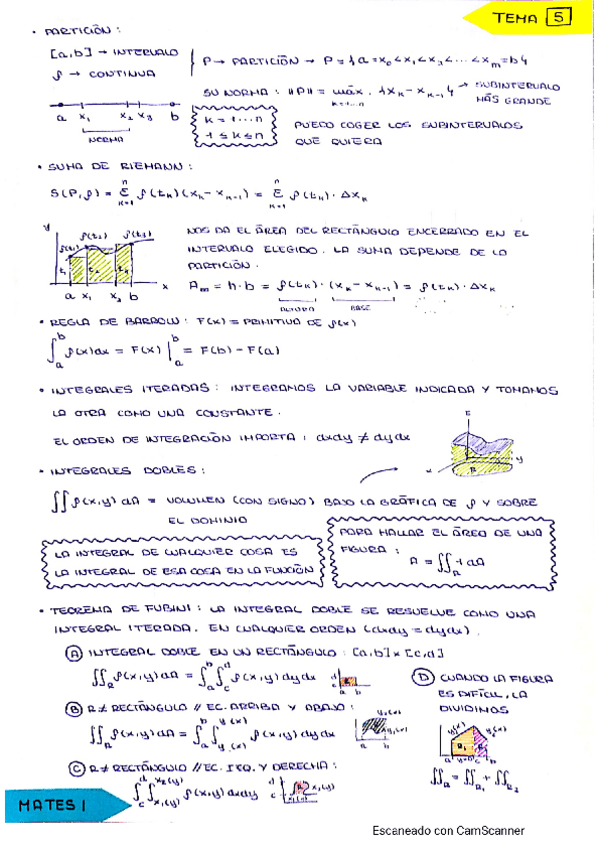 TEMA 5
• PARTICIÓN :
[a,b] → INTERVALO
f → CONTINUA
P → PARTICIÓN → P = { a = x₀ < x₁ < x₂ < ... < xₘ = b }
SU NORMA : ||P|| = máx. {xₖ - xₖ₋₁} → SUBINTERVALO MÁS GRANDE
k=1...n
a x₁ x₂ x₃ b
NORMA
k = 1 ... n
1 ≤ k ≤ n
PUEDO COGER LOS SUBINTERVALOS
QUE QUIERA
• SUMA DE RIEMANN :
S(P,f) = Σ f(tₖ)(xₖ - xₖ₋₁) = Σ f(tₖ) · Δxₖ
NOS DA EL ÁREA DEL RECTÁNGULO ENCERRADO EN EL
INTERVALO ELEGIDO. LA SUMA DEPENDE DE LA
PARTICIÓN.
Aₘ = h · b = f(tₖ) · (xₖ - xₖ₋₁) = f(tₖ) · Δxₖ
ALTURA BASE
a x₁ x₂ b x
• REGLA DE BARROW : F(x) = PRIMITIVA DE f(x)
∫ₐᵇ f(x)dx = F(x) |ₐᵇ = F(b) - F(a)
• INTEGRALES ITERADAS : INTEGRAMOS LA VARIABLE INDICADA Y TOMAMOS
LA OTRA COMO UNA CONSTANTE.
EL ORDEN DE INTEGRACIÓN IMPORTA : dxdy ≠ dydx
• INTEGRALES DOBLES :
∫∫ f(x,y) dA = VOLUMEN (CON SIGNO) BAJO LA GRÁFICA DE f Y SOBRE
EL DOMINIO
x y R
LA INTEGRAL DE CUALQUIER COSA ES
LA INTEGRAL DE ESA COSA EN LA FUNCIÓN
PARA HALLAR EL ÁREA DE UNA
FIGURA :
A = ∫∫_R 1 dA
• TEOREMA DE FUBINI : LA INTEGRAL DOBLE SE RESUELVE COMO UNA
INTEGRAL ITERADA. EN CUALQUIER ORDEN (dxdy = dydx).
Ⓐ INTEGRAL DOBLE EN UN RECTÁNGULO : [a,b] × [c,d]
∫∫_R f(x,y) dA = ∫ₐᵇ ∫_c^d f(x,y) dydx
Ⓑ R ≠ RECTÁNGULO // EC. ARRIBA Y ABAJO :
∫∫_R f(x,y) dA = ∫ₐᵇ ∫ f(x,y) dydx
Ⓒ R ≠ RECTÁNGULO // EC. IZQ. Y DERECHA :
∫_c^d ∫_{x₁(y)}^{x₂(y)} f(x,y) dxdy
Ⓓ CUANDO LA FIGURA
ES DIFÍCIL, LA
DIVIDIMOS
∫∫_R = ∫∫_R₁ + ∫∫_R₂
MATES 1
Escaneado con CamScanner